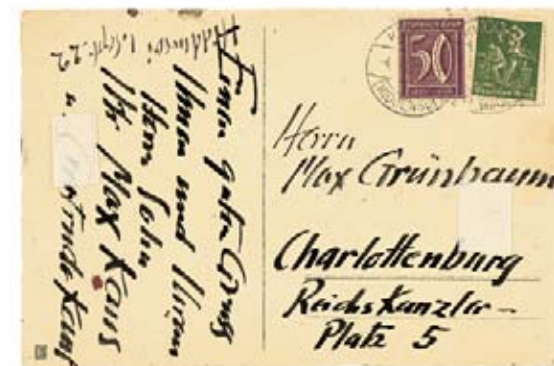 1. Sept. 22
Einen guten Gruss
Ihnen und Ihrem
Herrn Sohn
Ihr Max Kaus
u.
50
Herrn
Max Grünbaum
Charlottenburg
Reichskanzler-
Platz 5